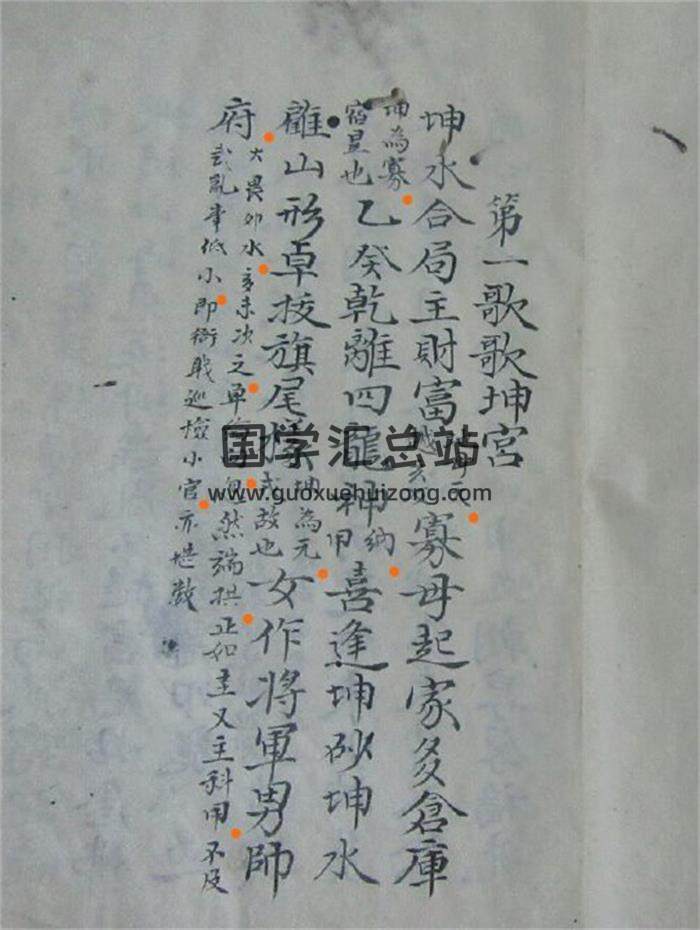 第一歌歌坤宮
坤水合局主財富
寡母起家多倉庫
坤為寡
宿星也
乙癸乾離四龍神
納
甲
喜逢坤砂坤水
離山形卓拔旗尾
坤為元
武故也
女作將軍男帥
府
大畏卯水亥未次之單
忽然端拱正如主又主科甲不及
低小即衙職巡檢小官亦堪數
国学汇总站
www.guoxuehuizong.com